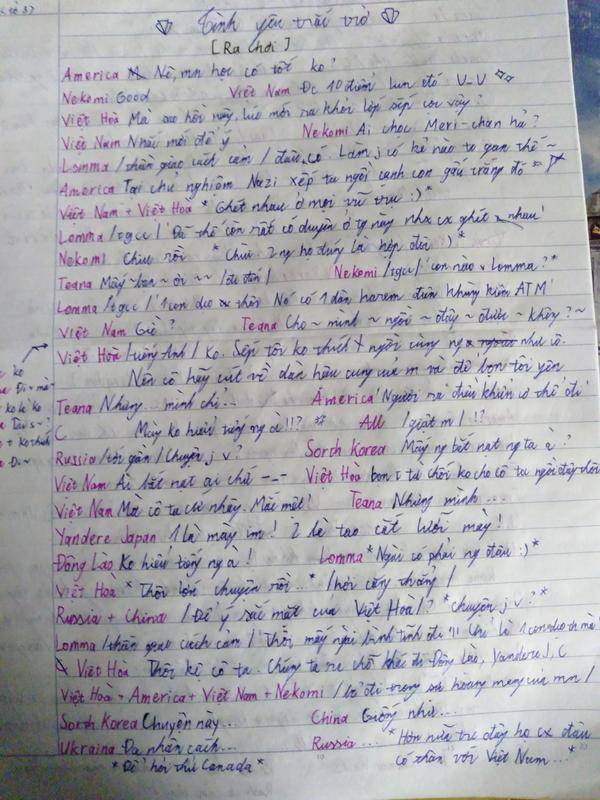 Tình yêu trắc trở
[Ra chơi]
America Nè, mn học có tốt ko?
Nekomi Good Việt Nam Đc 10 điểm lun đó U_U
Việt Hoà Mà sao hồi này, lúc mới ra khỏi lớp sếp cọc vậy?
Việt Nam Nhắc mới để ý Nekomi Ai chọc Meri-chan hả?
Lomma /thần giao cách cảm/ được có. Làm j có kẻ nào to gan thế ~
America Tại chủ nghiệm Nazi xếp ta ngồi cạnh con gấu trắng đó
Việt Nam + Việt Hoà *Ghét nhau ở mọi vũ trụ :)*
Lomma /tgcc/ 'Đã thế còn rất có duyên ở tg này nhx cx ghét nhau'
Nekomi Chịu rồi *Chừa 2 ng họ đúng là hợp đôi :)*
Teana Mấy ~ bạn ~ ơi ~~ /đi đến/ Nekomi /tgcc/ 'con nào v Lomma?'
Lomma /tgcc/ '1 con dở thôi. Nó có 1 dàn harem điên khùng kiêm ATM'
Việt Nam Gì? Teana Cho ~ mình ~ ngồi ~ đây ~ được ~ không? ~
Việt Hoà /tiếng Anh/ Ko. Sếp tôi ko thích ngồi cùng ng như cô.
Nên cô hãy cút về dàn hậu cung của m và để bọn tôi yên
Teana Nhưng... mình chỉ... America Người ra điều khiển có thể đi
C Mày ko hiểu tiếng ng à!!? All /giật m/ !?
Russia /tới gần/ Chuyện j v? Sorth Korea Mấy ng bắt nạt ng ta à?
Việt Nam Ai bắt nạt ai chứ -_- Việt Hoà bọn t từ chối ko cho cô ta ngồi đây thôi
Việt Nam Mà cô ta cứ nhây. Mắc mệt! Teana Nhưng mình ...
Yandere Japan 1 là mày im! 2 là tao cắt lưỡi mày!
Đông Lào Ko hiểu tiếng ng à! Lomma *Ngài có phải ng đâu :)*
Việt Hoà *Thôi lớn chuyện rồi..* /hơi căng thẳng/
Russia + China /Để ý sắc mặt của Việt Hoà/? *chuyện j v?*
Lomma /thần giao cách cảm/ 'Thôi mấy ngài bình tĩnh đi!!! Chỉ là 1 con dở th mà'
Việt Hoà Thôi kệ cô ta. Chúng ta ra chỗ khác đi Đông Lào, Yandere J, C
Việt Hoà + America + Việt Nam + Nekomi /bỏ đi trong sự hoang mang của mn/
Sorth Korea Chuyện này... China Giống như...
Ukraina Đa nhân cách... Russia ... *Hơn nữa trc đây họ cx đâu
*Để hỏi thử Canada* có thân với Việt Nam...*